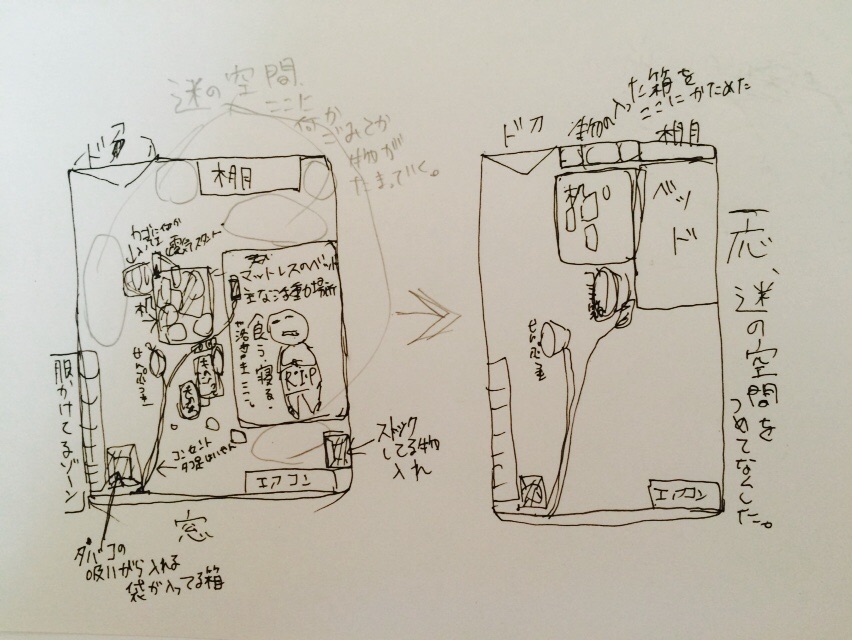 迷の空間
ここに
何か
ごみとか
物が
たまっていく。
ドア
棚
カゴに何か
入ってる
電気スタンド
机
マットレスのベッド
主な活動場所
食う、寝る、
R.I.P
せんぷうき
コンセント
服かけてるゾーン
エアコン
ストック
してる物
入れ
窓
タバコの
吸いがら入れる
袋が入ってる箱
ドア
物の入った箱を
ここにかためた
棚
机
ベッド
ゴミ箱
せんぷうき
エアコン
一応、迷の空間を
つめてなくした。